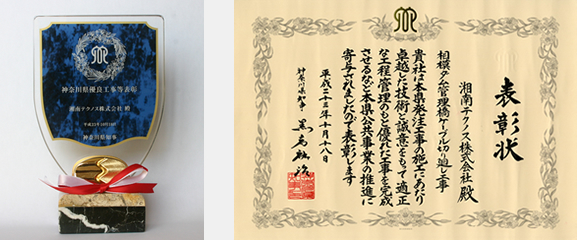 神奈川県優良工事等表彰
湘南テクノス株式会社 殿
平成23年10月18日
神奈川県知事
表彰状
湘南テクノス株式会社 殿
相模ダム管理橋ケーブル切り廻し工事
貴社は本県発注工事の施工にあたり
卓越した技術と誠意をもって適正
な工程管理のもと優れた工事を完成
させるなど本県公共事業の推進に
寄与されましたので表彰します
平成二十三年十月十八日
神奈川県知事 黒岩祐治